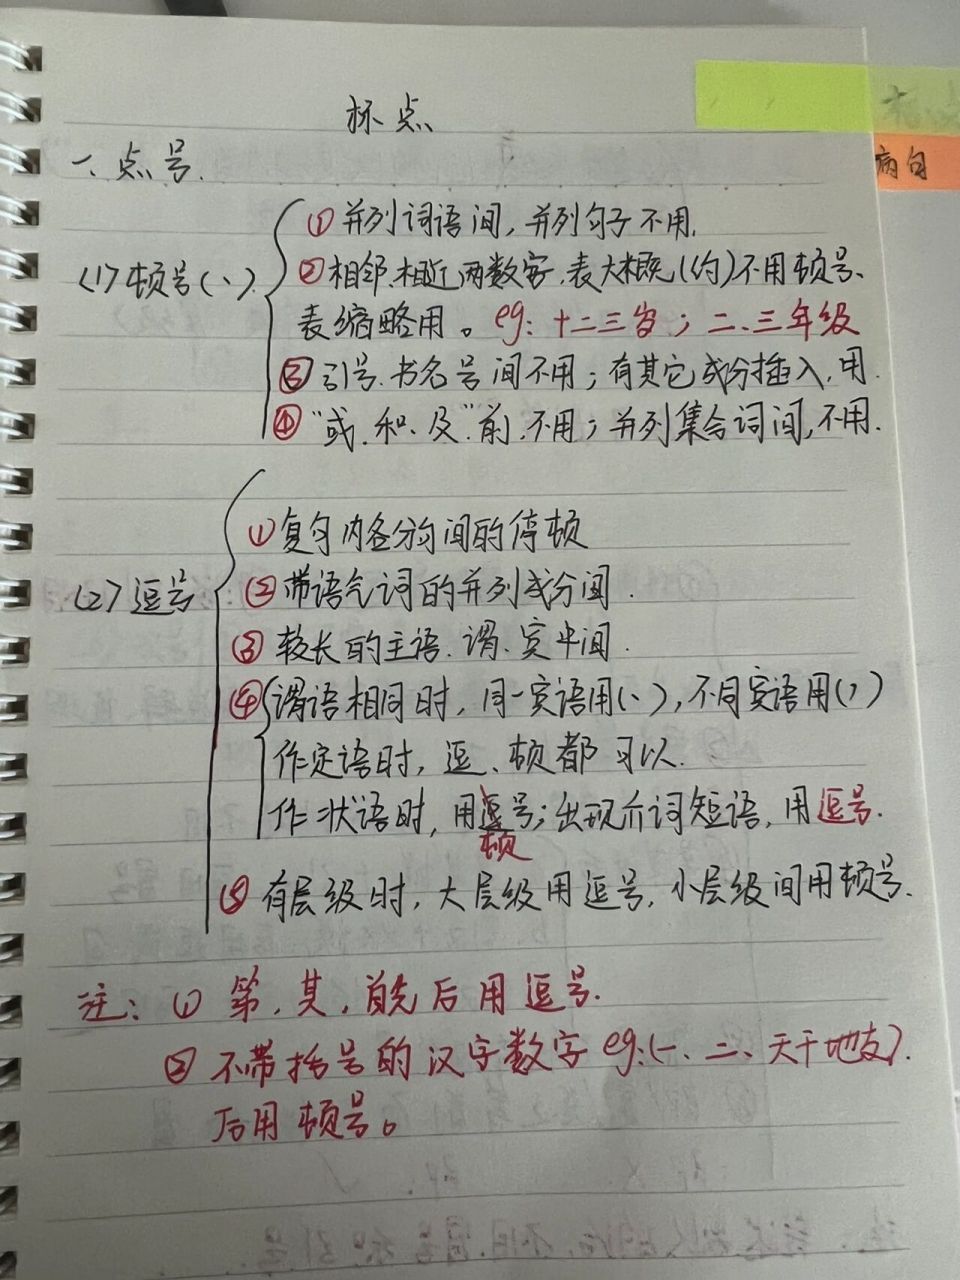 标点
病句
一、点号.
(1)顿号(、)
①并列词语间,并列句子不用.
②相邻.相近两数字.表大概(约)不用顿号、
表缩略用。eg:十二三岁;二、三年级
③引号.书名号间不用;有其它成分插入.用.
④“或.和.及”前.不用;并列集合词间,不用.
(2)逗号
①复句内各分句间的停顿
②带语气词的并列成分间.
③较长的主语.谓、宾中间.
④谓语相同时,同一宾语用(、),不同宾语用(,)
作定语时,逗、顿都可以.
作状语时,用顿号;出现介词短语,用逗号.
⑤有层级时,大层级用逗号,小层级间用顿号.
注:①第.其,首先后用逗号.
②不带括号的汉字数字eg:(一、二、天干地支).
后用顿号。